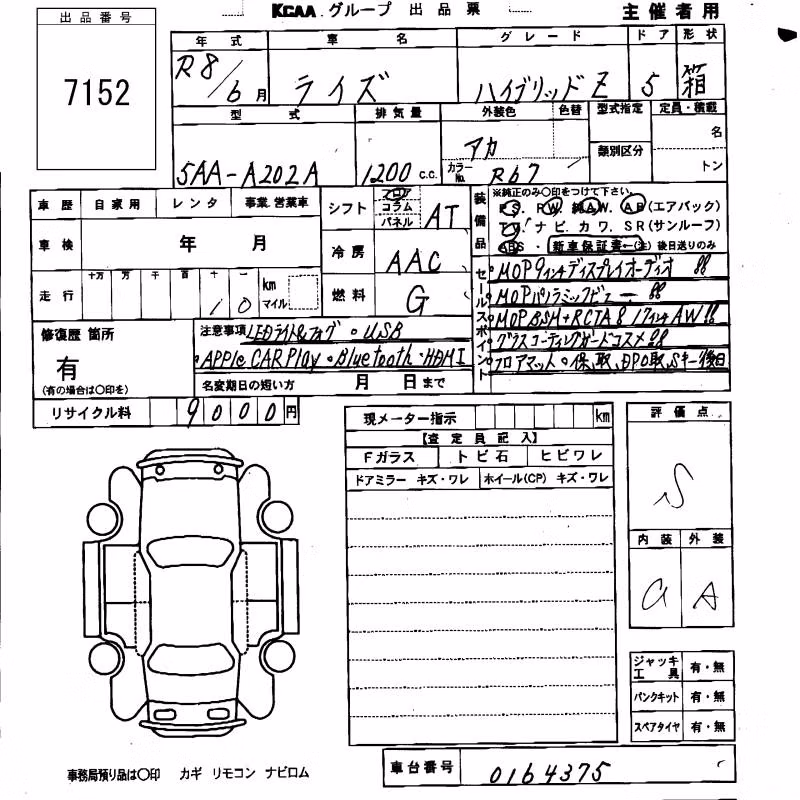 KCAA グループ 出品票
主催者用
出品番号
7152
年式 車名 グレード ドア 形状
R8/6月 ライズ ハイブリッド Z 5 箱
型式 排気量 外装色 色替 型式指定 定員・積載
5AA-A202A 1200 c.c. アカ カラーNo. R67 類別区分 名 トン
車歴 自家用 レンタ 事業.営業車
車検 年 月
走行 十万 万 千 百 十 一 km マイル
10
シフト フロア コラム パネル AT
冷房 AAC
燃料 G
装備品
※純正のみ〇印をつけて下さい。
PS. PW. 純AW. AB(エアバック)
TV. ナビ. カワ. SR(サンルーフ)
ABS・新車保証書←(注) 後日送りのみ
セールスポイント
MOP 9インチディスプレイオーディオ !!
MOPパノラミックビュー !!
MOP BSM+RCTA & 17インチAW!!
グラスコーティングガードコスメ!!
フロアマット。保、取、DPO取、Sキー後日
修復歴 箇所
有
(有の場合は〇印を)
注意事項 LEDライト&フォグ・USB
・Apple CAR Play・Bluetooth・HDMI
名変期日の短い方 月 日まで
リサイクル料 9000円
現メーター指示 km
【査定員記入】
Fガラス トビ石 ヒビワレ
ドアミラー キズ・ワレ ホイール(CP) キズ・ワレ
評価点
S
内装 外装
a A
ジャッキ工具 有・無
パンクキット 有・無
スペアタイヤ 有・無
事務局預り品は〇印 カギ リモコン ナビロム
車台番号 0164375